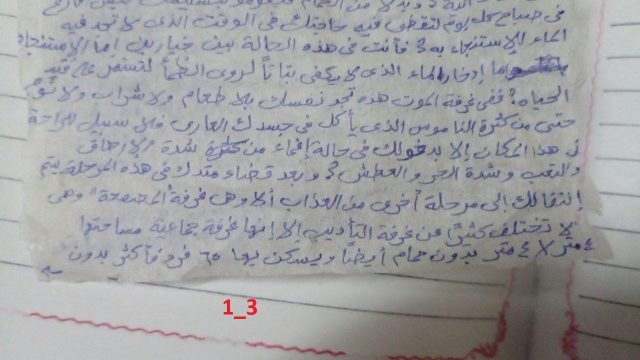 في صباح كل يوم لتقضي فيه حاجتك في الوقت الذي لا تجد فيه
الماء للإستنجاء به؟ فأنت في هذه الحالة بين خيارين اما الإستنجاء
إما إدخار الماء الذي لا يكفي بتاتاً لروى الظمأ لتستمر على قيد
الحياه؟ ففي غرفة الموت هذه تجد نفسك بلا طعام ولا شراب ولا نوم
حتى من كثرة الناموس الذي يأكل في جسدك العاري فلا سبيل للراحة
في هذا المكان إلا بدخولك في حالة إغماء من شدة الإرهاق
والتعب وشدة الحر والعطش؟ وبعد قضاء مدتك في هذه المرحلة يتم
إنتقالك إلى مرحلة أخرى من العذاب ألا وهي غرفة "المجمعة" وهي
لا تختلف كثيراً عن غرفة التأديب إلا إنها غرفة جماعية مساحتها
٤ متر × ٤ متر بدون حمام أيضاً ويسكن بها ٦٥ فرد فأكثر بدون
1_3